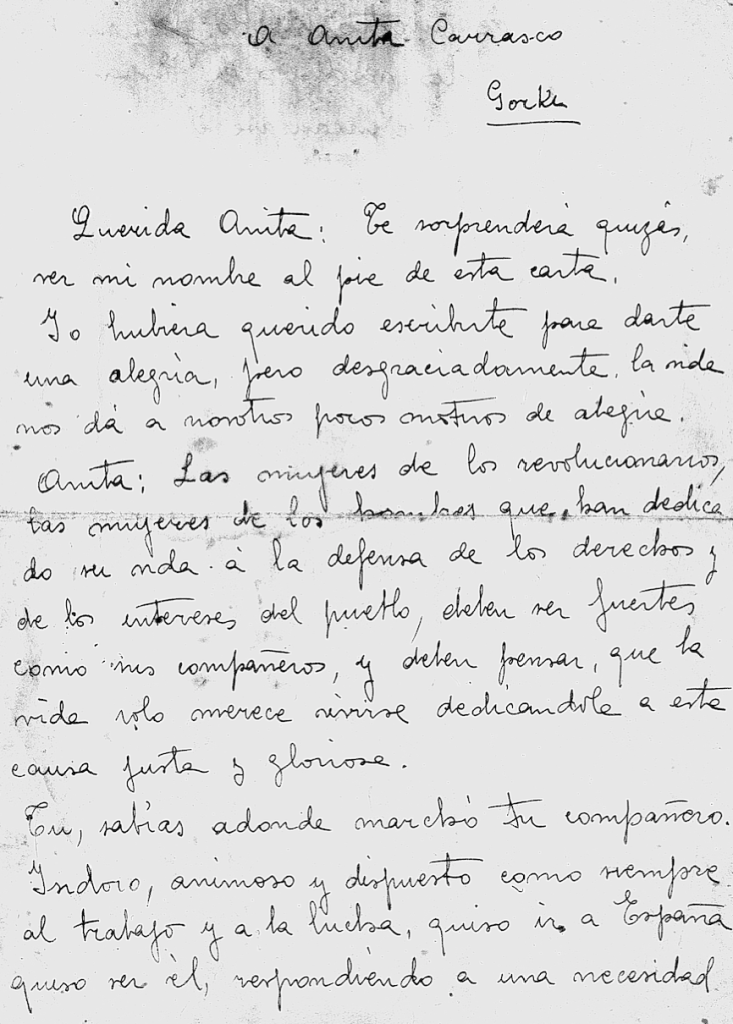 A Anita Carrasco
Gorki
Querida Anita: Te sorprenderá quizás,
ver mi nombre al pie de esta carta.
Yo hubiera querido escribirte para darte
una alegria, pero desgraciadamente, la vida
nos dá a nosotros pocos motivos de alegria.
Anita: Las mujeres de los revolucionarios,
las mujeres de los hombres que han dedica
do su vida à la defensa de los derechos y
de los intereses del pueblo, deben ser fuertes
como sus compañeros, y deben pensar, que la
vida solo merece vivirse dedicandola a esta
causa justa y gloriosa.
Tu, sabías adonde marchó tu compañero.
Isidoro, animoso y dispuesto como siempre
al trabajo y a la lucha, quiso ir a España
quiso ser él, respondiendo a una necesidad